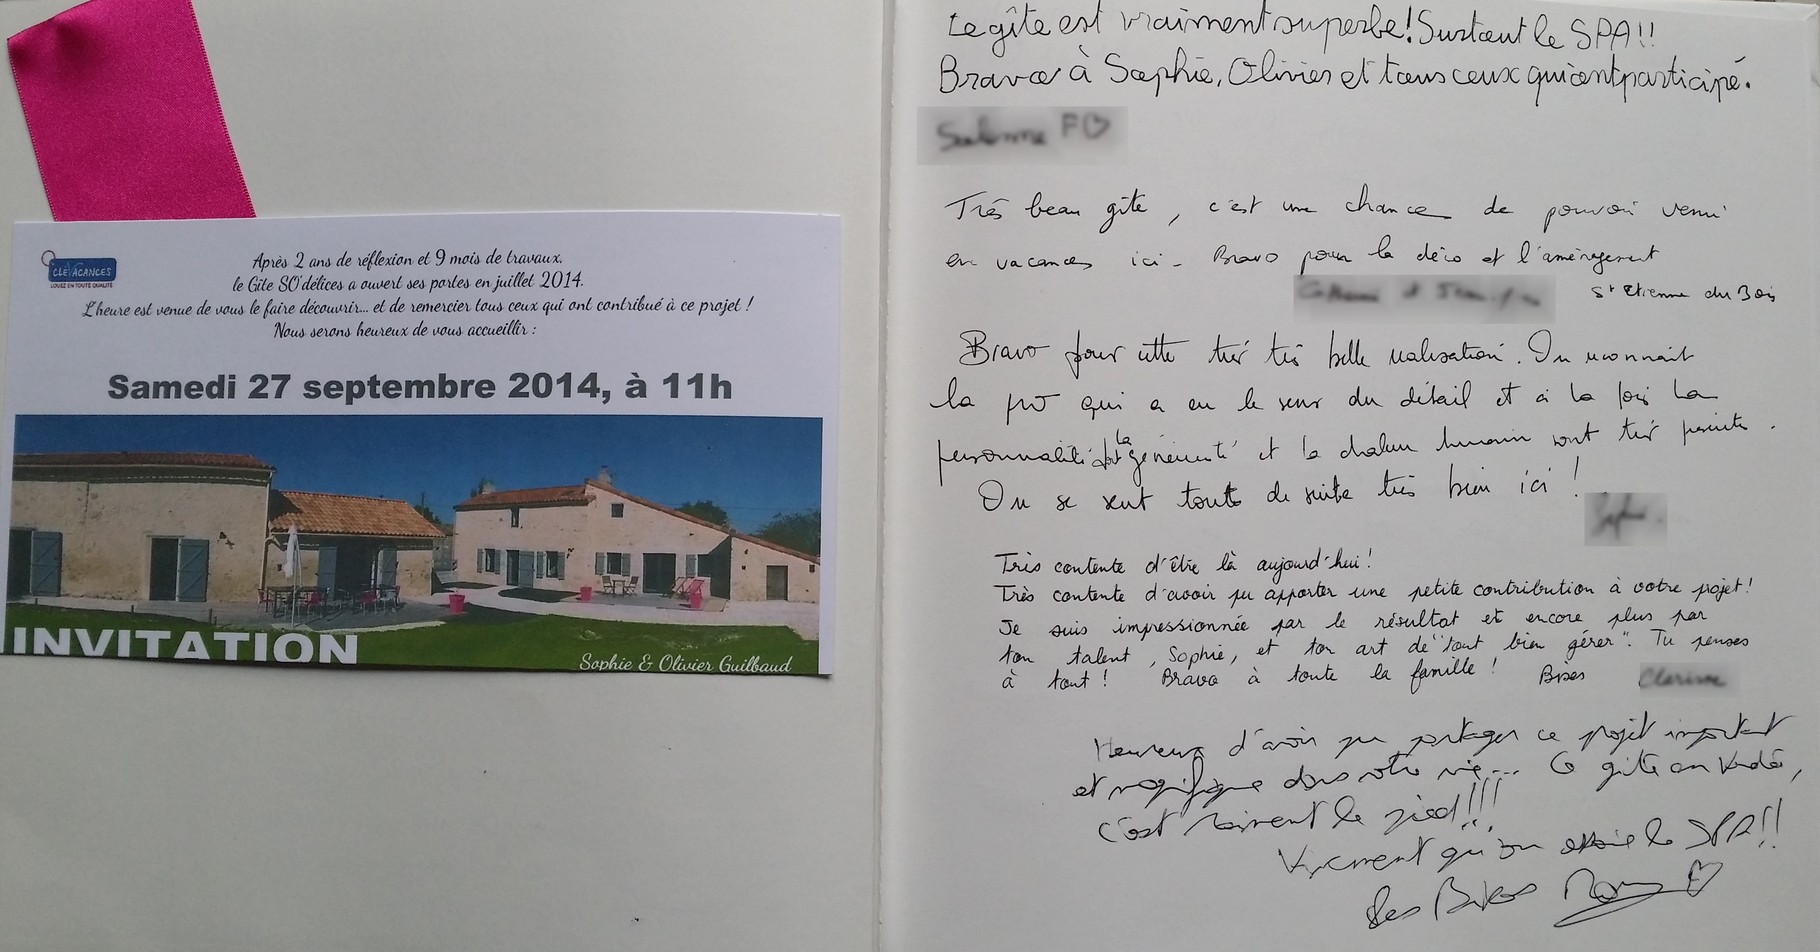 CLÉVACANCES
LOUEZ EN TOUTE QUALITÉ
Après 2 ans de réflexion et 9 mois de travaux,
le Gîte SO'délices a ouvert ses portes en juillet 2014.
L'heure est venue de vous le faire découvrir... et de remercier tous ceux qui ont contribué à ce projet !
Nous serons heureux de vous accueillir :
Samedi 27 septembre 2014, à 11h
INVITATION
Sophie & Olivier Guilbaud
Le gîte est vraiment superbe! Surtout le SPA!!
Bravo à Sophie, Olivier et tous ceux qui ont participé.
Très beau gîte, c'est une chance de pouvoir venir
en vacances ici - Bravo pour la déco et l'aménagement
St Etienne du Bois
Bravo pour cette très très belle réalisation. On reconnait
la pro qui a eu le sens du détail et à la fois la
personnalité dont la générosité et la chaleur humaine sont très présentes.
On se sent toute de suite très bien ici !
Très contente d'être là aujourd'hui !
Très contente d'avoir pu apporter une petite contribution à votre projet !
Je suis impressionnée par le résultat et encore plus par
ton talent, Sophie, et ton art de "tout bien gérer". Tu penses
à tout ! Bravo à toute la famille ! Bises
Heureux d'avoir pu partager ce projet important
et magnifique dans votre vie... Ce gîte en Vendée,
c'est vraiment le pied !!!
Vivement qu'on essaie le SPA !!